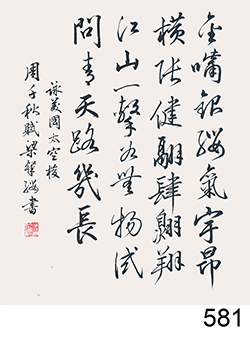 金嘯銀纓氣宇昂
橫張健翮肆翱翔
江山一擊無物試
問青天路幾長
詠美國太空梭
周千秋賦梁粲纓書
581